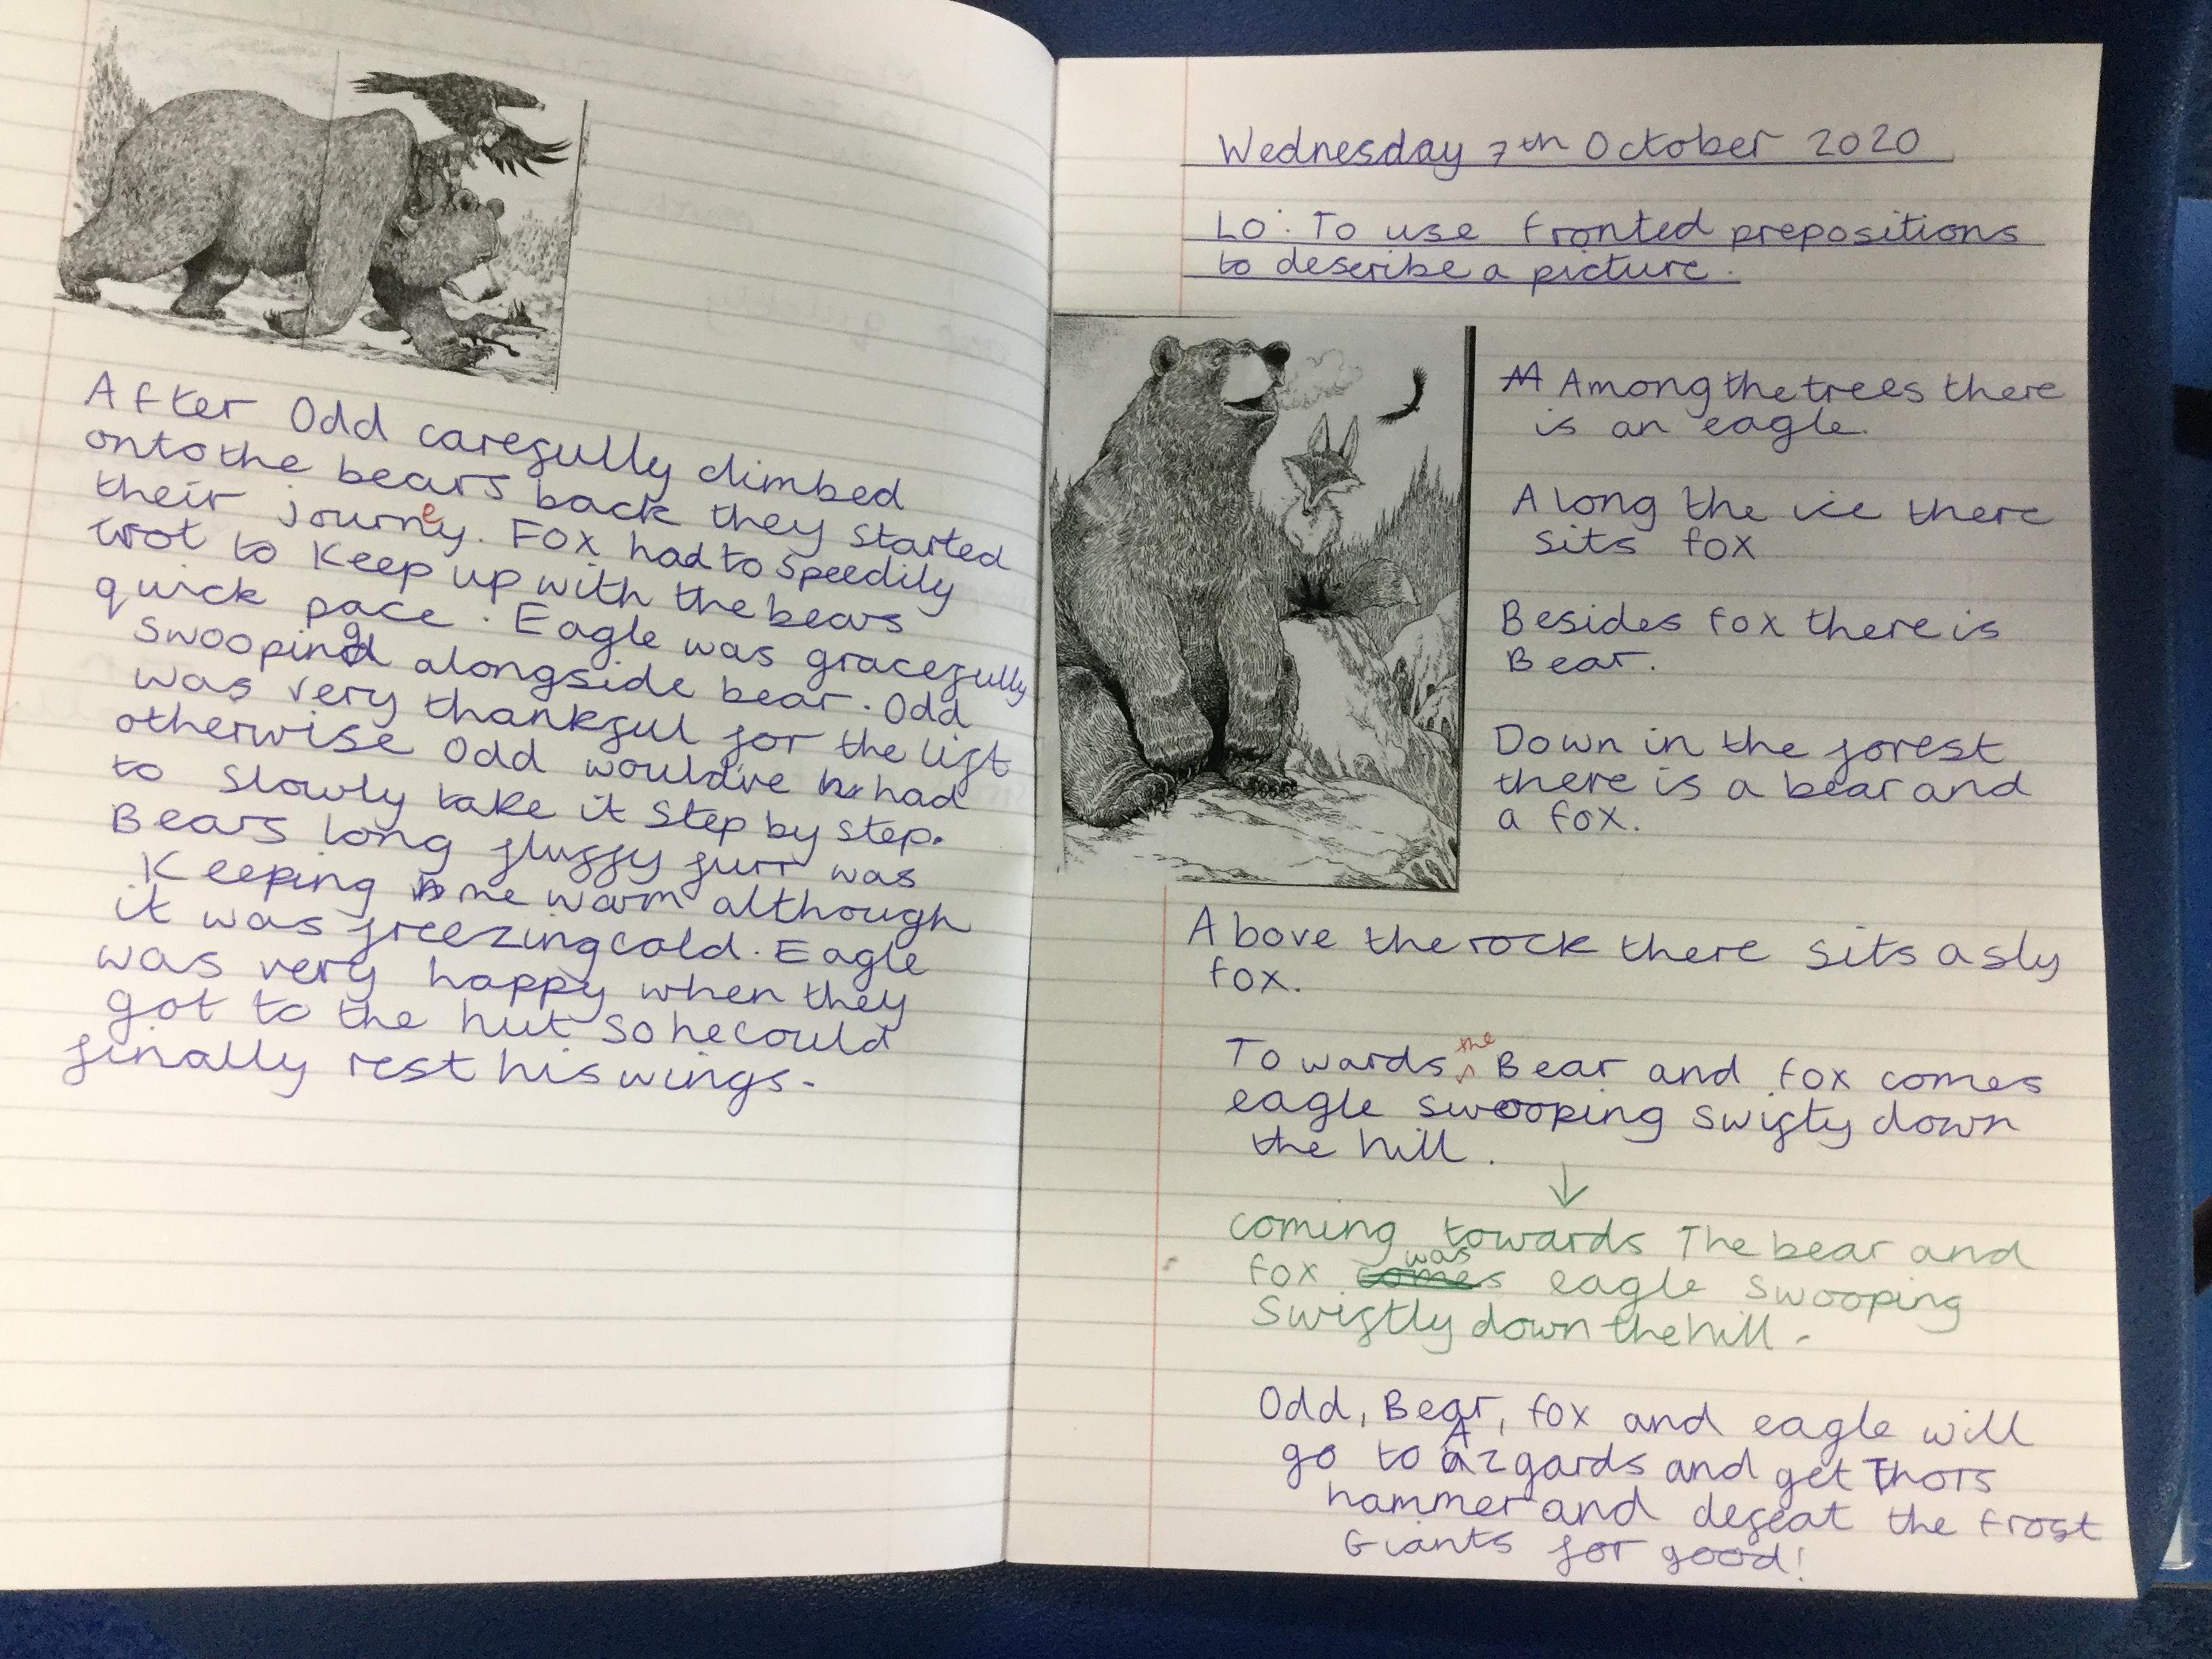 After Odd carefully climbed
onto the bears back they started
their journey. Fox had to speedily
trot to keep up with the bears
quick pace. Eagle was gracefully
swooping alongside bear. Odd
was very thankful for the lift
otherwise Odd would've had
to slowly take it step by step.
Bears long fluffy furr was
keeping me warm although
it was freezing cold. Eagle
was very happy when they
got to the hut so he could
finally rest his wings.
Wednesday 7th October 2020
LO: To use fronted prepositions
to describe a picture.
Among the trees there
is an eagle.
Along the ice there
sits fox
Besides fox there is
Bear.
Down in the forest
there is a bear and
a fox.
Above the rock there sits a sly
fox.
Towards the Bear and fox comes
eagle swooping swifty down
the hill.
↓
coming towards The bear and
fox comes was eagle swooping
swiftly down the hill.
Odd, Bear, fox and eagle will
go to Azgards and get Thors
hammer and defeat the frost
Giants for good!